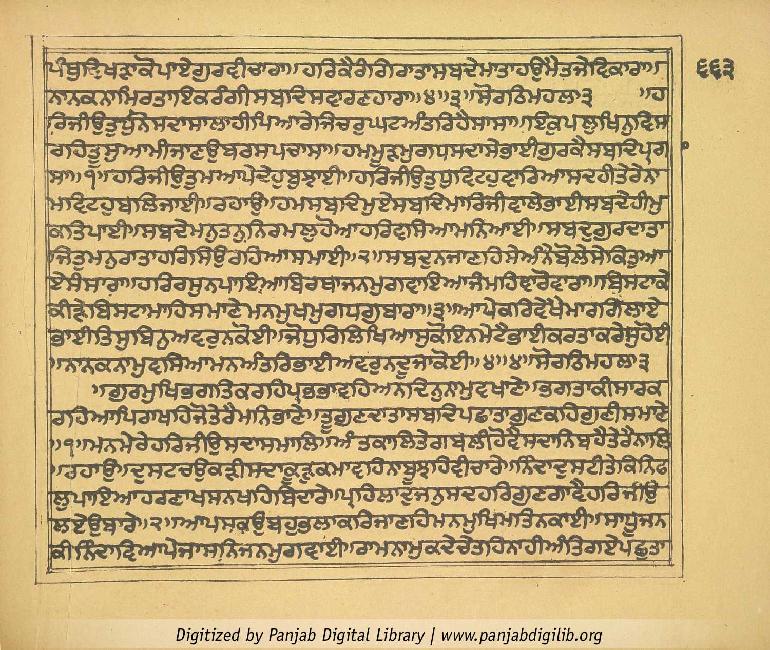 ਪੰਥੁਵਿਖੜਾਕੋਪਾਏਗੁਰਵੀਚਾਰਾ॥ਹਰਿਕੈਰੰਗਿਰਾਤਾਸਬਦੇਮਾਤਾਹਉਮੈਤਜੇਵਿਕਾਰਾ॥ ੬੬੩
ਨਾਨਕਨਾਮਿਰਤਾਇਕਰੰਗੀਸਬਦਿਸਵਾਰਣਹਾਰਾ॥੪॥੩॥ਸੋਰਠਿਮਹਲਾ੩ ॥ਹ
ਰਿਜੀਉਤੁਧੁਨੋਸਦਾਸਾਲਾਹੀਪਿਆਰੇਜਿਚਰੁਘਟਅੰਤਰਿਹੈਸਾਸਾ॥ਇਕੁਪਲੁਖਿਨੁਵਿਸ
ਰਹਿਤੂਸੁਆਮੀਜਾਣਉਬਰਸਪਚਾਸਾ॥ਹਮਮੂੜਮੁਗਧਸਦਾਸੇਭਾਈਗੁਰਕੈਸਬਦਿਪ੍ਰਗਾ
ਸਾ॥੧॥ਹਰਿਜੀਉਤੁਮਆਪੇਦੇਹੁਬੁਝਾਈ॥ਹਰਿਜੀਉਤੁਧੁਵਿਟਹੁਵਾਰਿਆਸਦਹੀਤੇਰੇਨਾ
ਮਵਿਟਹੁਬਲਿਜਾਈ॥ਰਹਾਉ॥ਹਮਸਬਦਿਮੁਏਸਬਦਿਮਾਰਿਜੀਵਾਲੇਭਾਈਸਬਦੇਹੀਮੁ
ਕਤਿਪਾਈ॥ਸਬਦੇਮਨੁਤਨੁਨਿਰਮਲੁਹੋਆਹਰਿਵਸਿਆਮਨਿਆਈ॥ਸਬਦੁਗੁਰਦਾਤਾ
ਜਿਤੁਮਨੁਰਾਤਾਹਰਿਸਿਉਰਹਿਆਸਮਾਈ॥੨॥ਸਬਦੁਨਜਾਣਹਿਸੇਅੰਨੇਬੋਲੇਸੇਕਿਤੁਆ
ਏਸੰਸਾਰਾ॥ਹਰਿਰਸੁਨਪਾਇਆਬਿਰਥਾਜਨਮੁਗਵਾਇਆਜੰਮਹਿਵਾਰੋਵਾਰਾ॥ਬਿਸਟਾਕੇ
ਕੀੜੇਬਿਸਟਾਮਾਹਿਸਮਾਣੇਮਨਮੁਖਮੁਗਧਗੁਬਾਰਾ॥੩॥ਆਪੇਕਰਿਵੇਖੈਮਾਰਗਿਲਾਏ
ਭਾਈਤਿਸੁਬਿਨੁਅਵਰੁਨਕੋਈ॥ਜੋਧੁਰਿਲਿਖਿਆਸੁਕੋਇਨਮੇਟੈਭਾਈਕਰਤਾਕਰੇਸੁਹੋਈ
॥ਨਾਨਕਨਾਮੁਵਸਿਆਮਨਅੰਤਰਿਭਾਈਅਵਰੁਨਦੂਜਾਕੋਈ॥੪॥੪॥ਸੋਰਠਿਮਹਲਾ੩
॥ਗੁਰਮੁਖਿਭਗਤਿਕਰਹਿਪ੍ਰਭਭਾਵਹਿਅਨਦਿਨੁਨਾਮੁਵਖਾਣੇ॥ਭਗਤਾਕੀਸਾਰਕ
ਰਹਿਆਪਿਰਾਖਹਿਜੋਤੇਰੈਮਨਿਭਾਣੇ॥ਤੂਗੁਣਦਾਤਾਸਬਦਿਪਛਾਤਾਗੁਣਕਹਿਗੁਣੀਸਮਾਣੇ
॥੧॥ਮਨਮੇਰੇਹਰਿਜੀਉਸਦਾਸਮਾਲਿ॥ਅੰਤਕਾਲਿਤੇਰਾਬੇਲੀਹੋਵੈਸਦਾਨਿਬਹੈਤੇਰੈਨਾਲਿ
॥ਰਹਾਉ॥ਦੁਸਟਚਉਕੜੀਸਦਾਕੂੜੁਕਮਾਵਹਿਨਾਬੂਝਹਿਵੀਚਾਰੇ॥ਨਿੰਦਾਦੁਸਟੀਤੇਕਿਨਿਫ
ਲੁਪਾਇਆਹਰਣਾਖਸਨਖਹਿਬਿਦਾਰੇ॥ਪ੍ਰਹਿਲਾਦੁਜਨੁਸਦਹਰਿਗੁਣਗਾਵੈਹਰਿਜੀਉ
ਲਏਉਬਾਰੇ॥੨॥ਆਪਸਕਉਬਹੁਭਲਾਕਰਿਜਾਣਹਿਮਨਮੁਖਿਮਤਿਨਕਾਈ॥ਸਾਧੂਜਨ
ਕੀਨਿੰਦਾਵਿਆਪੇਜਾਸਨਿਜਨਮੁਗਵਾਈ॥ਰਾਮਨਾਮੁਕਦੇਚੇਤਹਿਨਾਹੀਅੰਤਿਗਏਪਛੁਤਾ
Digitized by Panjab Digital Library | www.panjabdigilib.org